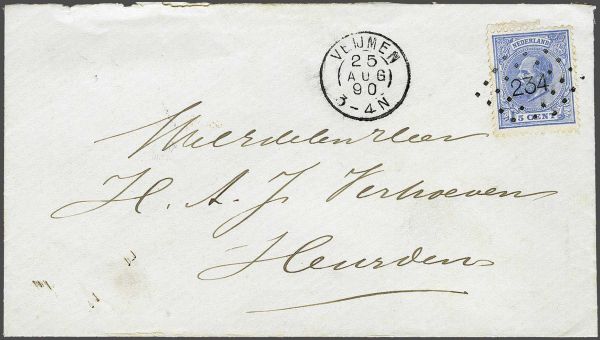 VLIJMEN
25
AUG
90
3-4N
NEDERLAND
234
5 CENT
H. A. J. Verhoeven
Heusden